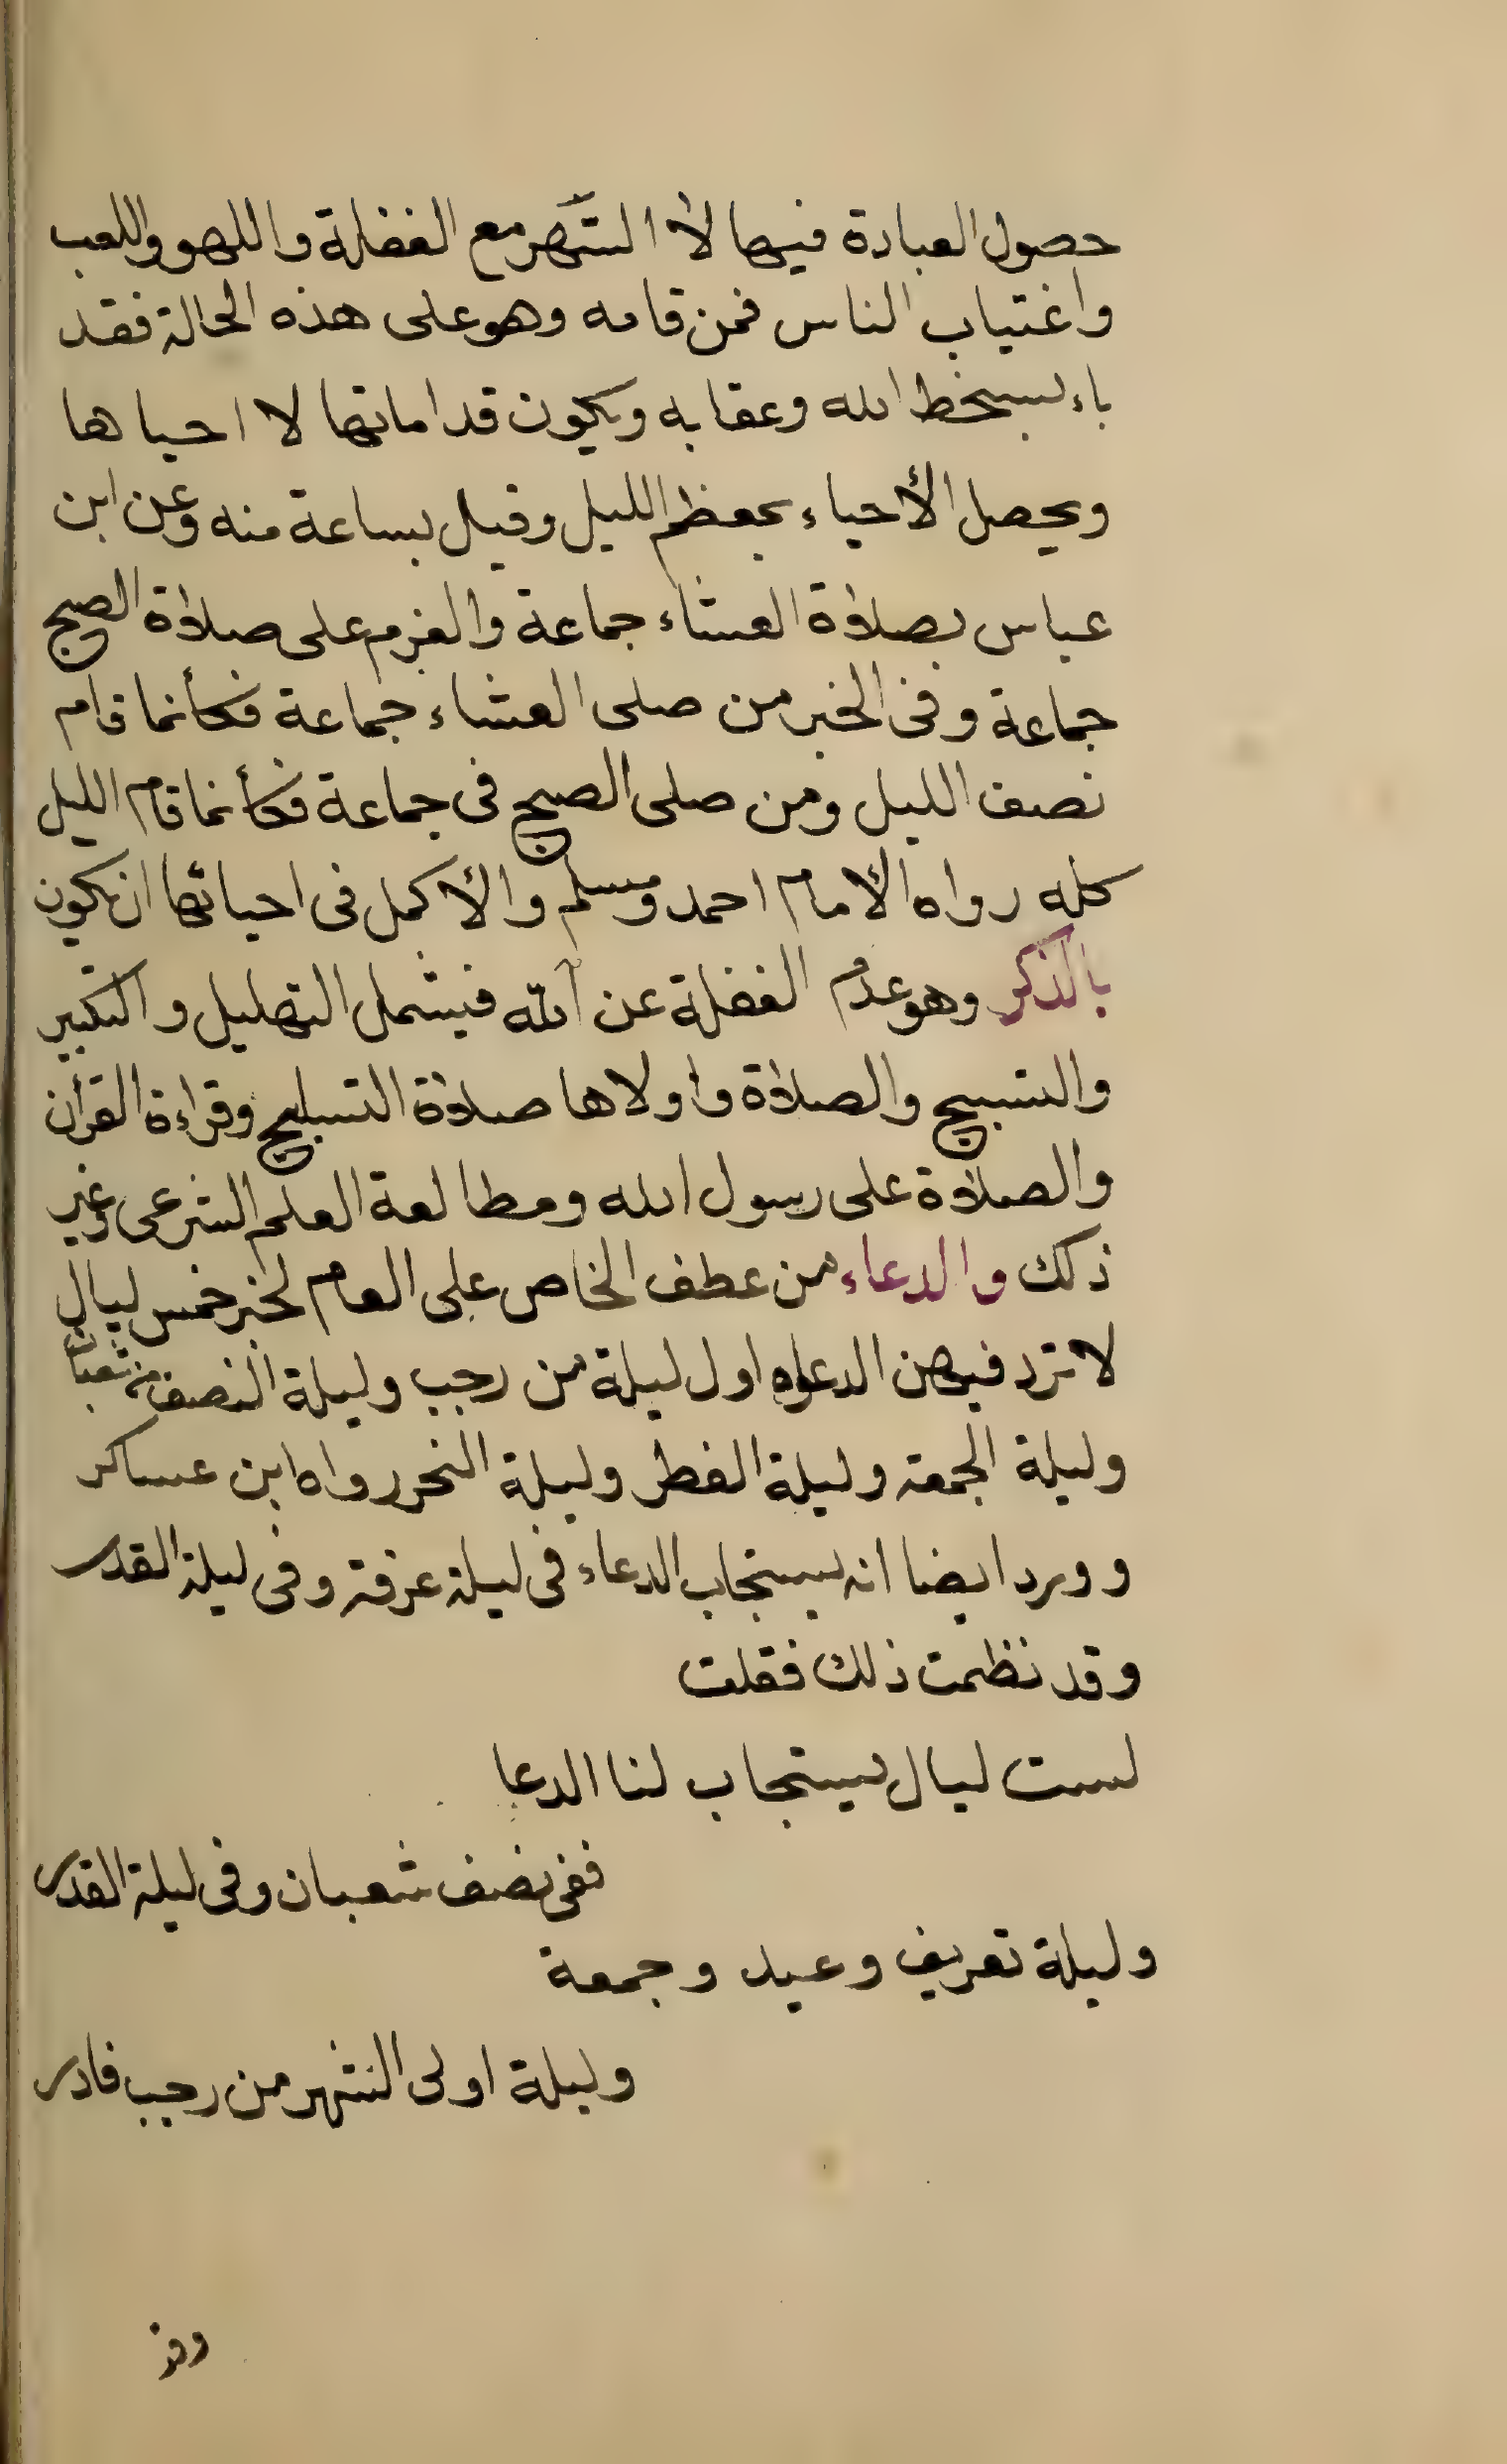 حصول العبادة فيها لا السّهر مع الغفلة واللهو واللعب
واغتياب الناس فمن قامه وهو على هذه الحالة فقد
باء بسخط الله وعقابه ويكون قد اماتها لا احياها
ويحصل الأحياء بمعظم الليل وقيل بساعة منه وعن ابن
عباس بصلاة العشاء جماعة والعزم على صلاة الصبح
جماعة وفى الخبر من صلى العشاء جماعة فكأنما قام
نصف الليل ومن صلى الصبح فى جماعة فكأنما قام الليل
كله رواه الأمام احمد ومسلم والأكمل فى احيائها ان يكون
بالذكر وهو عدم الغفلة عن الله فيشمل التهليل والتكبير
والتسبيح والصلاة واولاها صلاة التسابيح وقراءة القرآن
والصلاة على رسول الله ومطالعة العلم الشرعى وغير
ذلك والدعاء من عطف الخاص على العام لخبر خمس ليال
لا ترد فيهن الدعاوه اول ليلة من رجب وليلة النصف من شعبان
وليلة الجمعة وليلة الفطر وليلة النحر رواه ابن عساكر
وورد ايضا انه يستجاب الدعاء فى ليلة عرفة وفى ليلة القدر
وقد نظمت ذلك فقلت
لست ليال يستجاب لنا الدعا
ففى نصف شعبان وفى ليلة القدر
وليلة تعريف وعيد وجمعة
وليلة اولى الشهر من رجب فادر